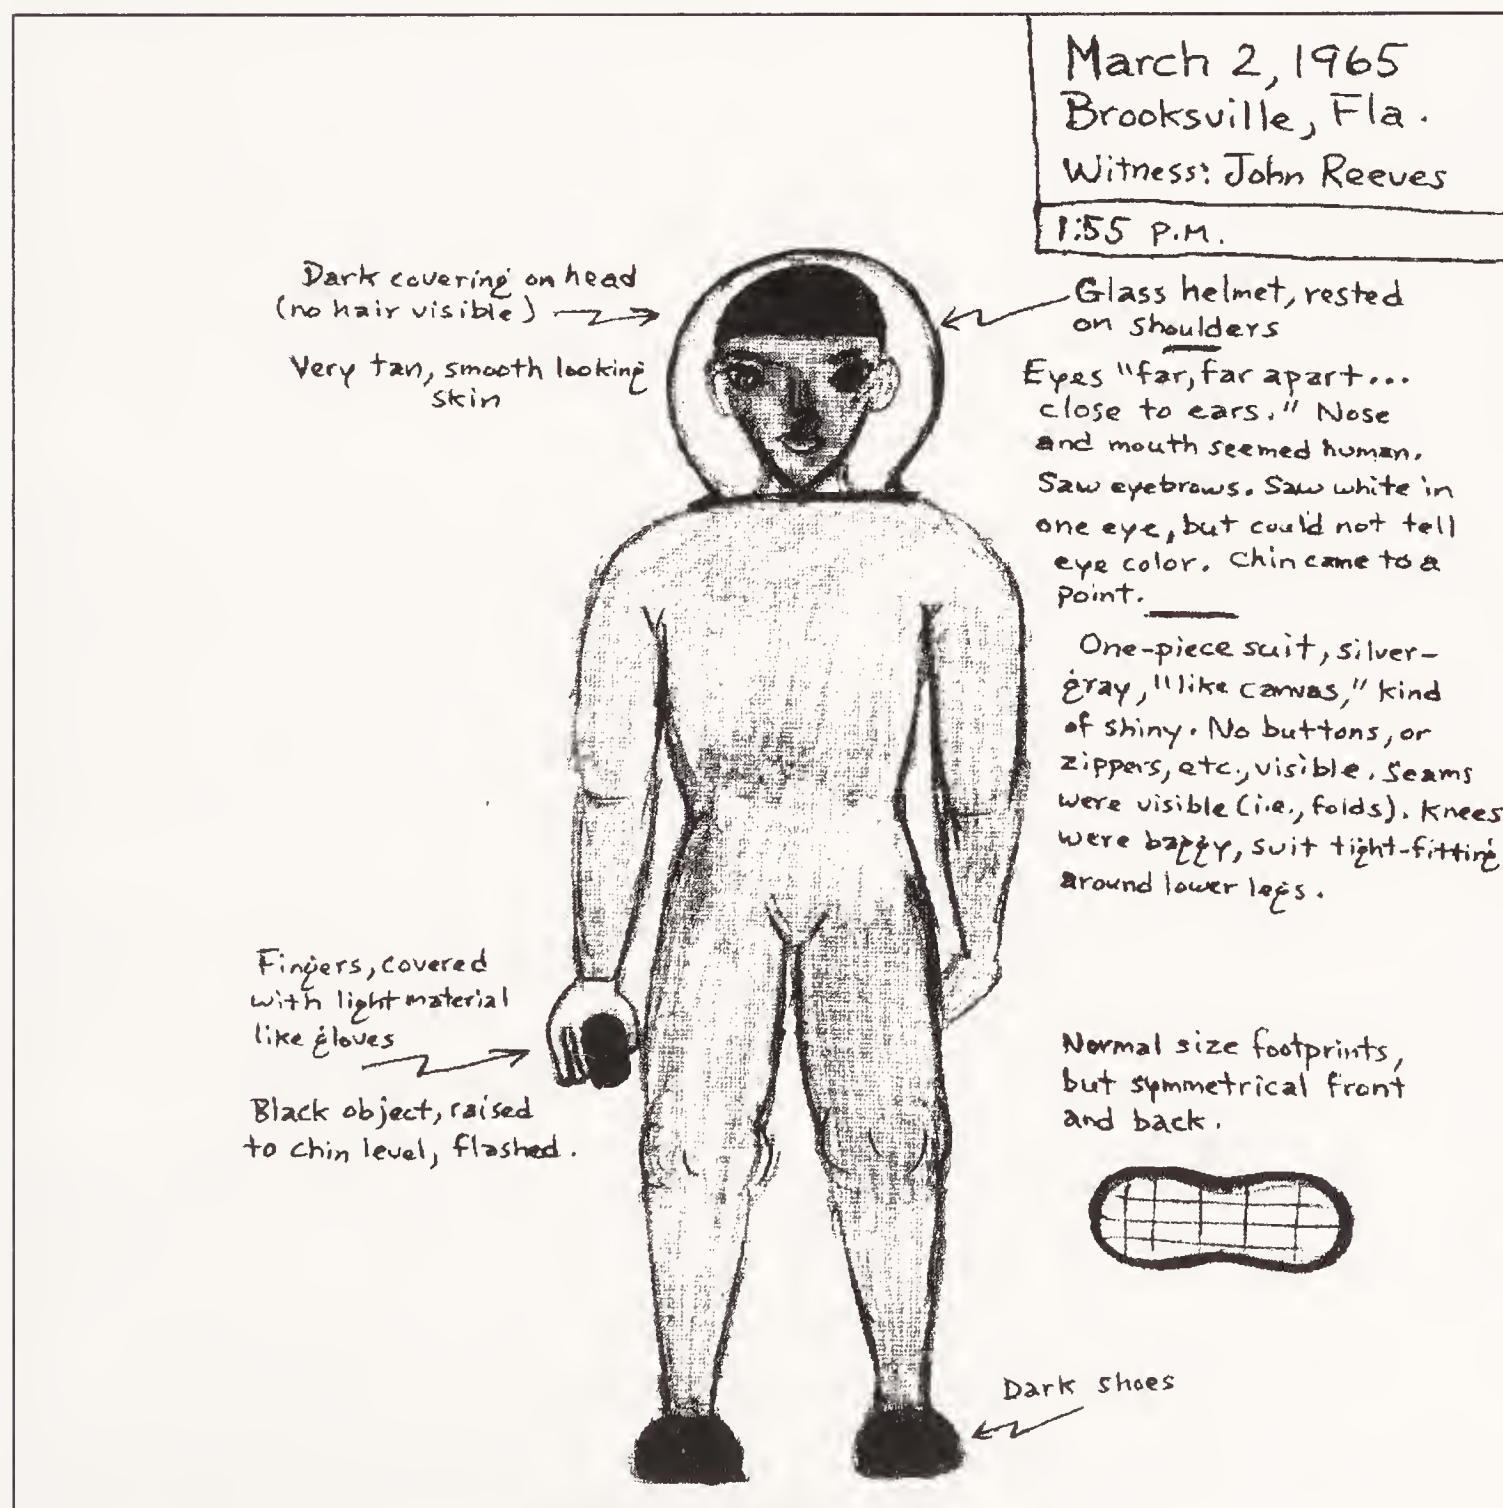 March 2, 1965
Brooksville, Fla.
Witness: John Reeves
1:55 P.M.
Dark covering on head
(no hair visible)
Very tan, smooth looking
skin
Glass helmet, rested
on shoulders
Eyes "far, far apart...
close to ears." Nose
and mouth seemed human.
Saw eyebrows. Saw white in
one eye, but could not tell
eye color. Chin came to a
point.
One-piece suit, silver-
gray, "like canvas," kind
of shiny. No buttons, or
zippers, etc., visible. Seams
were visible (i.e., folds). Knees
were baggy, suit tight-fitting
around lower legs.
Fingers, covered
with light material
like gloves
Black object, raised
to chin level, flashed.
Normal size footprints,
but symmetrical front
and back.
Dark shoes